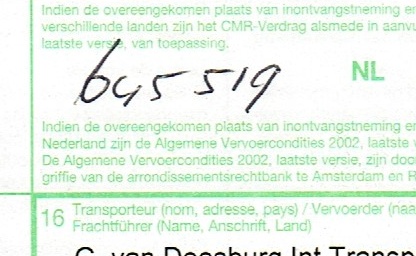 Indien de overeengekomen plaats van inontvangstneming en
verschillende landen zijn het CMR-Verdrag alsmede in aanvu
laatste versie, van toepassing.
645519
NL
Indien de overeengekomen plaats van inontvangstneming en
Nederland zijn de Algemene Vervoercondities 2002, laatste v
De Algemene Vervoercondities 2002, laatste versie, zijn doo
griffie van de arrondissementsrechtbank te Amsterdam en R
16 Transporteur (nom, adresse, pays) / Vervoerder (naa
Frachtführer (Name, Anschrift, Land)
C. van Doesburg Int Transp